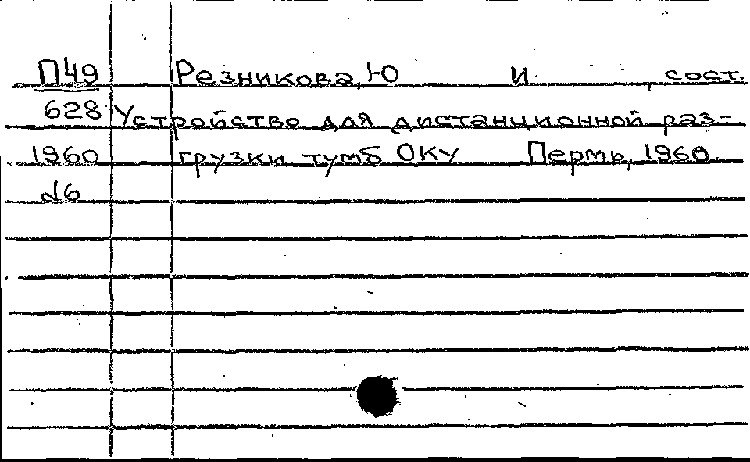 П49 Резникова, Ю И , сост.
628 Устройство для дистанционной раз-
1960 грузки тумб ОКУ Пермь, 1960.
№6